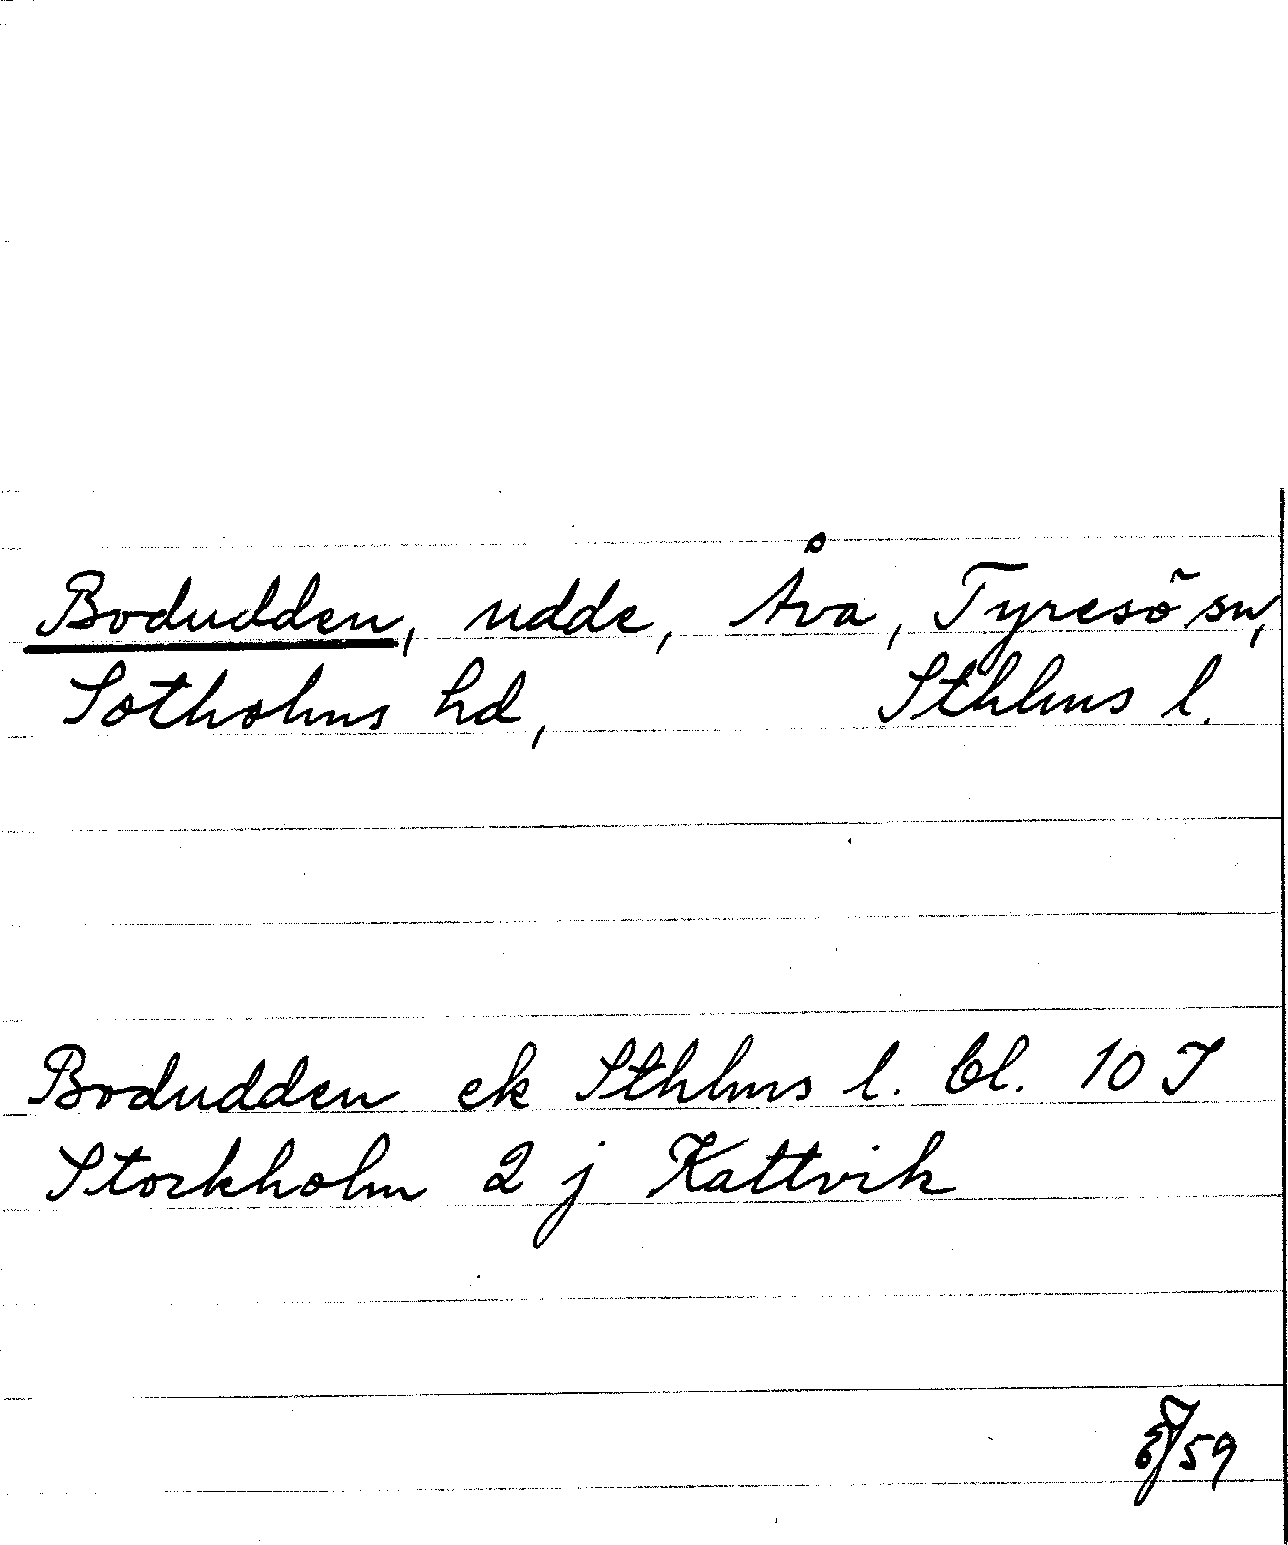 Bodudden, udde, Åva, Tyresö sn,
Sotholms hd, Sthlms l.
Bodudden ek Sthlms l. bl. 10 I
Stockholm 2 j Kattvik
/59